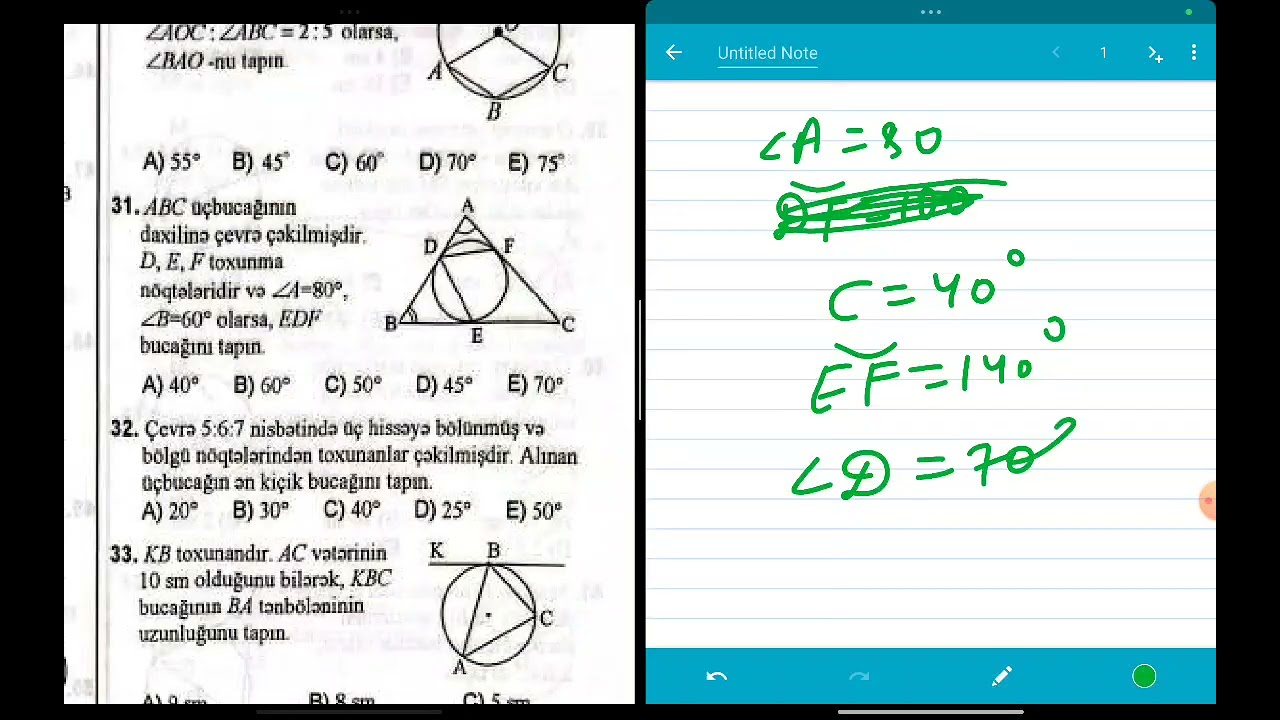 ∠AOC : ∠ABC = 2 : 5 olarsa,
∠BAO -nu tapın.
A
C
B
A) 55° B) 45° C) 60° D) 70° E) 75°
31. ABC üçbucağının
daxilinə çevrə çəkilmişdir.
D, E, F toxunma
nöqtələridir və ∠A=80°,
∠B=60° olarsa, EDF
bucağını tapın.
A
D
F
B
E
C
A) 40° B) 60° C) 50° D) 45° E) 70°
32. Çevrə 5:6:7 nisbətində üç hissəyə bölünmüş və
bölgü nöqtələrindən toxunanlar çəkilmişdir. Alınan
üçbucağın ən kiçik bucağını tapın.
A) 20° B) 30° C) 40° D) 25° E) 50°
33. KB toxunandır. AC vətərinin
10 sm olduğunu bilərək, KBC
bucağının BA tənböləninin
uzunluğunu tapın.
K B
C
A
A) 9 sm B) 8 sm C) 5 sm
Untitled Note
1
∠A = 80
C = 40°
EF = 140°
∠D = 70